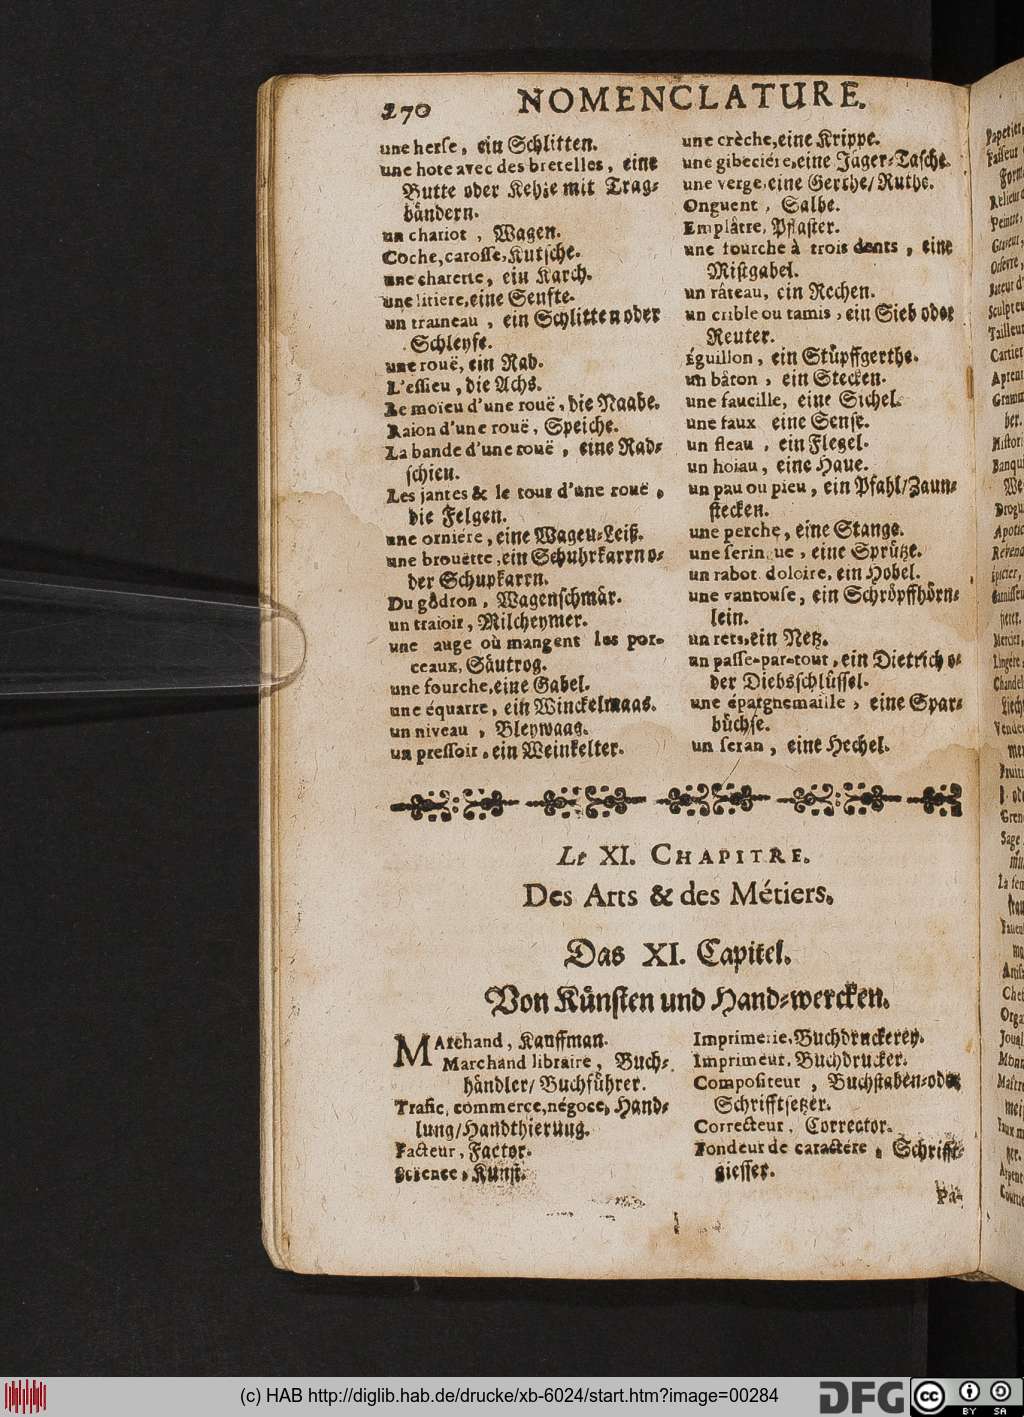 270 NOMENCLATURE.
une herse, ein Schlitten.
une hote avec des bretelles, eine
Butte oder Kehze mit Trag-
bändern.
un chariot, Wagen.
Coche, carosse, Kutsche.
une charette, ein Karch.
une litiere, eine Senfte.
un traineau, ein Schlitten oder
Schleyfe.
une rouë, ein Rad.
L'essieu, die Achs.
Le moïeu d'une rouë, die Naabe.
Raion d'une rouë, Speiche.
La bande d'une rouë, eine Rad-
schien.
Les jantes & le tour d'une rouë,
die Felgen.
une orniére, eine Wagen-Leiß.
une brouëtte, ein Schuhrkarrn o-
der Schupkarrn.
Du gôdron, Wagenschmär.
un traioir, Milcheymer.
une auge où mangent les por-
ceaux, Säutrog.
une fourche, eine Gabel.
une équarre, ein Winckelmaas.
un niveau, Bleywaag.
un pressoir, ein Weinkelter.
une crèche, eine Krippe.
une gibeciére, eine Jäger-Tasche.
une verge, eine Gerthe/ Ruthe.
Onguent, Salbe.
Emplâtre, Pflaster.
une fourche à trois dents, eine
Mistgabel.
un râteau, ein Rechen.
un crible ou tamis, ein Sieb oder
Reuter.
Éguillon, ein Stüpffgerthe.
un bâton, ein Stecken.
une faucille, eine Sichel.
une faux eine Sense.
un fleau, ein Flegel.
un hoiau, eine Haue.
un pau ou pieu, ein Pfahl/Zaun-
stecken.
une perche, eine Stange.
une serin ue, eine Sprütze.
un rabot doloire, ein Hobel.
une vantouse, ein Schröpffhörn-
lein.
un rets, ein Netz.
un passe-par-tout, ein Dietrich o-
der Diebsschlüssel.
une épargnemaille, eine Spar-
büchse.
un seran, eine Hechel.
Le XI. CHAPITRE.
Des Arts & des Métiers.
Das XI. Capitel.
Von Künsten und Hand-wercken.
MArchand, Kauffman.
Marchand libraire, Buch-
händler/ Buchführer.
Trafic, commerce, négoce, Hand-
lung/Handthierung.
Facteur, Factor.
Science, Kunst.
Imprimerie, Buchdruckerey.
Imprimeur, Buchdrucker.
Compositeur, Buchstaben-oder
Schrifftsetzer.
Correcteur, Corrector.
Fondeur de caractére, Schrifft-
giesser.
Pa-
(c) HAB http://diglib.hab.de/drucke/xb-6024/start.htm?image=00284
DFG
cc BY SA